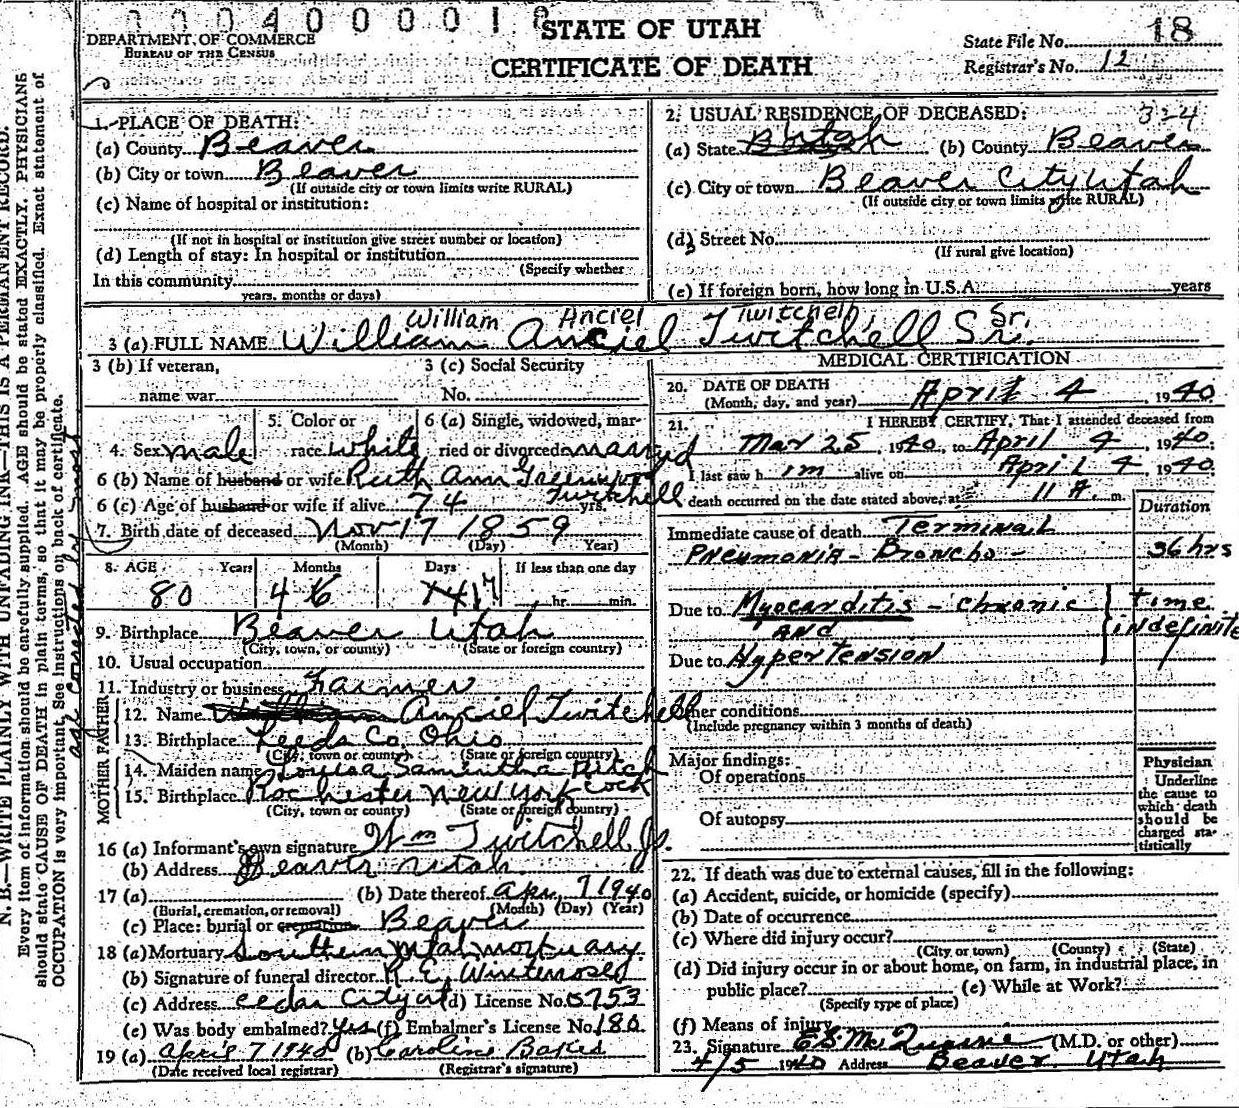 0 0 0 4 0 0 0 0 1 8
STATE OF UTAH
CERTIFICATE OF DEATH
DEPARTMENT OF COMMERCE
BUREAU OF THE CENSUS
State File No. 18
Registrar's No. 12
N. B.—WRITE PLAINLY WITH UNFADING INK—THIS IS A PERMANENT RECORD.
Every item of information should be carefully supplied. AGE should be stated EXACTLY. PHYSICIANS
should state CAUSE OF DEATH in plain terms, so that it may be properly classified. Exact statement of
OCCUPATION is very important. See instructions on back of certificate.
age corrected by
1. PLACE OF DEATH:
(a) County Beaver
(b) City or town Beaver
(If outside city or town limits write RURAL)
(c) Name of hospital or institution:
(If not in hospital or institution give street number or location)
(d) Length of stay: In hospital or institution
(Specify whether
In this community
years, months or days)
2. USUAL RESIDENCE OF DECEASED: 324
(a) State Utah (b) County Beaver
(c) City or town Beaver City Utah
(If outside city or town limits write RURAL)
(d) Street No.
(If rural give location)
(e) If foreign born, how long in U.S.A. years
William Anciel Twitchell, Sr.
3 (a) FULL NAME William Anciel Twitchell Sr.
3 (b) If veteran, 3 (c) Social Security
name war No.
5. Color or 6 (a) Single, widowed, mar-
4. Sex male race White ried or divorced married
6 (b) Name of husband or wife Ruth Ann Greenwood
Twitchell
6 (c) Age of husband or wife if alive 74 yrs.
7. Birth date of deceased Nov 17 1859
(Month) (Day) Year)
8. AGE Years Months Days If less than one day
80 4 6 17 hr. min.
9. Birthplace Beaver Utah
(City, town, or county) (State or foreign country)
10. Usual occupation
11. Industry or business Farmer
FATHER
12. Name William Anciel Twitchell
13. Birthplace Co. Ohio
(City, town or county) (State or foreign country)
MOTHER
14. Maiden name Louisa Samintha Pitch
cock
15. Birthplace Rochester New York
(City, town or county) (State or foreign country)
16 (a) Informant's own signature Wm Twitchell Jr.
(b) Address Beaver Utah.
17 (a) (b) Date thereof Apr. 7 1940
(Burial, cremation, or removal) (Month) (Day) (Year)
(c) Place: burial or cremation Beaver
18 (a) Mortuary Southern Utah mortuary
(b) Signature of funeral director R. E. Winterrose
(c) Address Cedar City Ut (d) License No. 5753
(e) Was body embalmed? Yes (f) Embalmer's License No. 180
19 (a) April 7 1940 (b) Caroline Bakes
(Date received local registrar) (Registrar's signature)
MEDICAL CERTIFICATION
20. DATE OF DEATH
(Month, day, and year) April 4, 1940
21. I HEREBY CERTIFY, That I attended deceased from
Mar 25, 1940, to April 4, 1940;
I last saw him alive on April 4 1940
death occurred on the date stated above, at 11 A. m.
Duration
Immediate cause of death Terminal
Pneumonia - Broncho - 36 hrs
Due to Myocarditis - chronic time
and indefinite
Due to Hypertension
Other conditions
(Include pregnancy within 3 months of death)
Major findings:
Of operations
Of autopsy
Physician
Underline
the cause to
which death
should be
charged sta-
tistically
22. If death was due to external causes, fill in the following:
(a) Accident, suicide, or homicide (specify)
(b) Date of occurrence
(c) Where did injury occur?
(City or town) (County) (State)
(d) Did injury occur in or about home, on farm, in industrial place, in
public place? (e) While at Work?
(Specify type of place)
(f) Means of injury
23. Signature E.S. McQuarrie (M.D. or other)
4/5 1940 Address Beaver. Utah